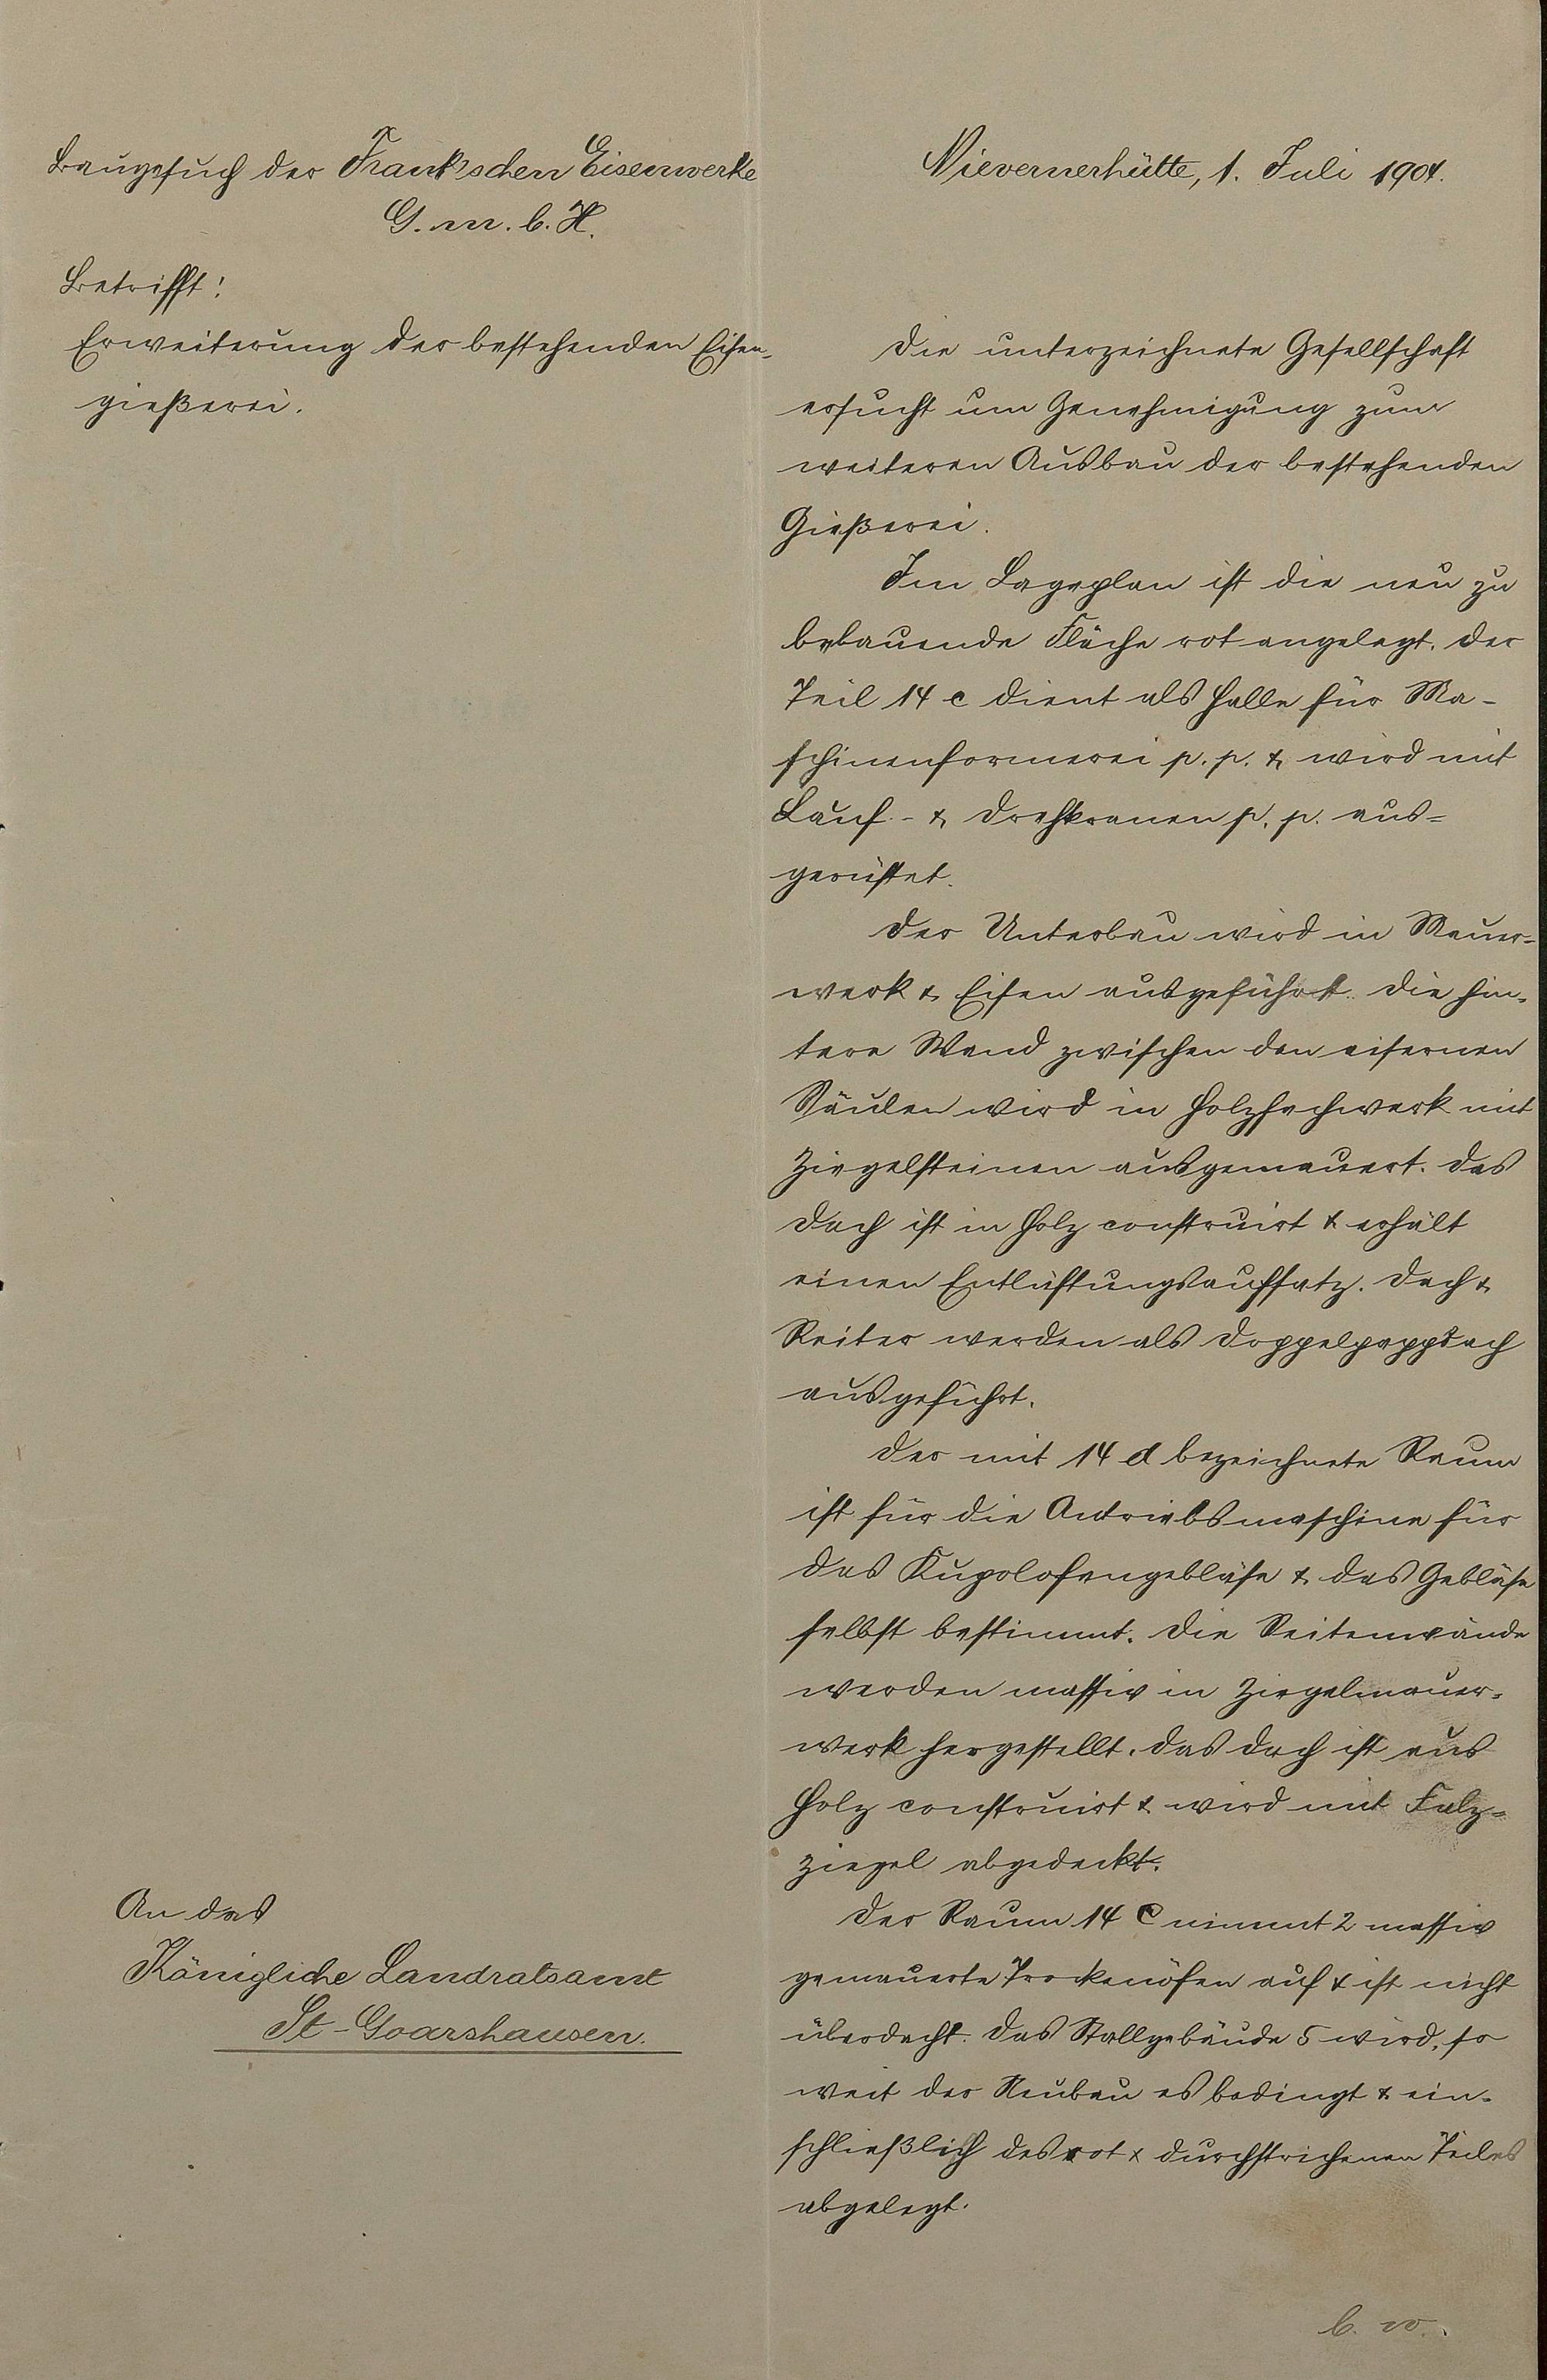 Baugesuch der Frank'schen Eisenwerke
G. m. b. H.
Betrifft!
Erweiterung der bestehenden Eisen-
gießerei.
An das
Königliche Landratsamt
St-Goarshausen.
Nievernerhütte, 1. Juli 1904.
Die unterzeichnete Gesellschaft
ersucht um Genehmigung zum
weiteren Ausbau der bestehenden
Gießerei.
Im Lageplan ist die neu zu
bebauende Fläche rot angelegt. Der
Teil 14 c dient als Halle für Ma-
schinenformerei p. p. & wird mit
Lauf- & Drehkranen p. p. aus=
gerüstet.
Der Unterbau wird in Mauer=
werk & Eisen ausgeführt. Die hin-
tere Wand zwischen den eisernen
Säulen wird in Holzfachwerk mit
Ziegelsteinen ausgemauert. Das
Dach ist in Holz construirt & erhält
einen Entlüftungsaufsatz. Dach &
Reiter werden als Doppelpappdach
ausgeführt.
Der mit 14 d bezeichnete Raum
ist für die Antriebsmaschine für
das Kupolofengebläse & das Gebläse
selbst bestimmt. Die Seitenwände
werden massiv in Ziegelmauer-
werk hergestellt. Das Dach ist aus
Holz construirt & wird mit Falz=
ziegel abgedeckt.
Der Raum 14 e nimmt 2 massiv
gemauerte Trockenöfen auf & ist nicht
überdacht. Das Stallgebäude 5 wird, so
weit der Neubau es bedingt & ein-
schließlich des rot x durchstrichenen Teiles
abgelegt.
b. w.